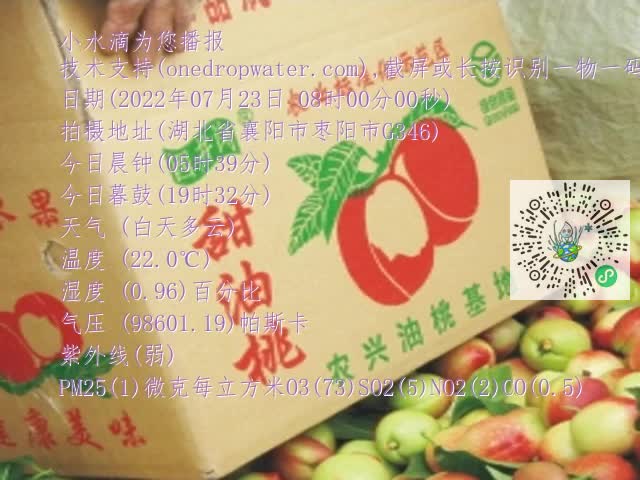 小水滴为您播报
技术支持(onedropwater.com),截屏或长按识别一物一码
日期(2022年07月23日 08时00分00秒)
拍摄地址(湖北省襄阳市枣阳市G346)
今日晨钟(05时39分)
今日暮鼓(19时32分)
天气 (白天多云)
温度 (22.0℃)
湿度 (0.96)百分比
气压 (98601.19)帕斯卡
紫外线(弱)
PM25(1)微克每立方米O3(73)SO2(5)NO2(2)CO(0.5)
甜油桃
农兴油桃基地
水果
健康美味